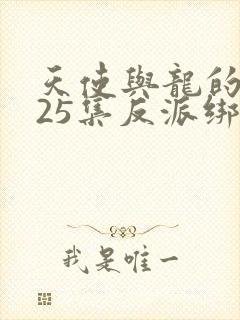 天使與龍的
25集反派綁
我是唯一